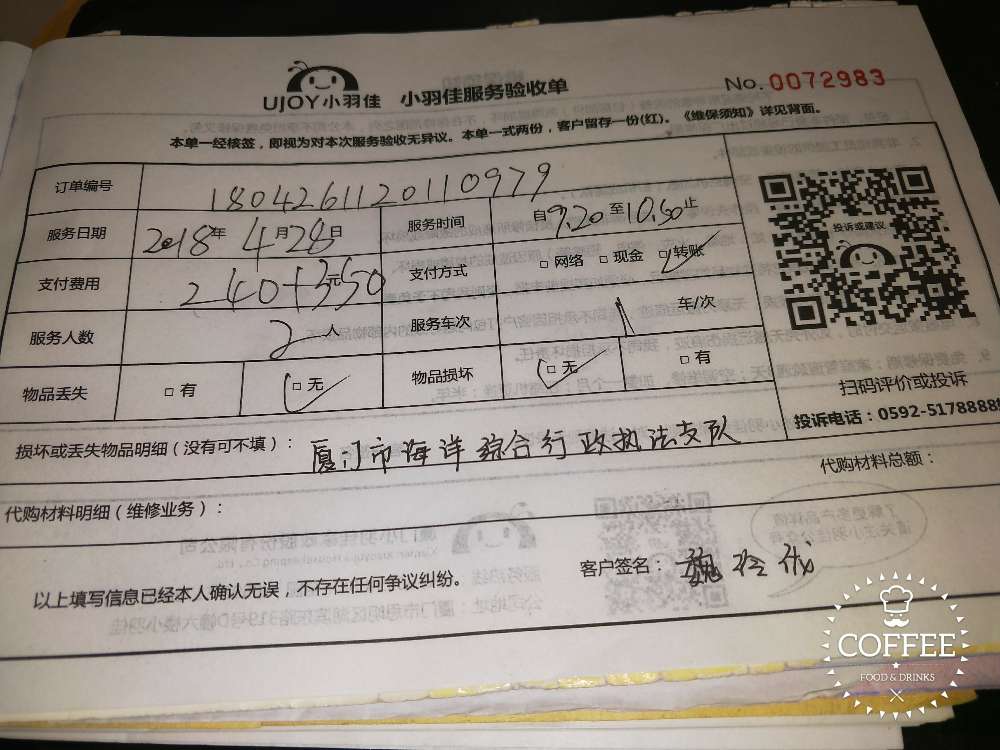 UJOY小羽佳 小羽佳服务验收单 No.0072983
本单一经核签，即视为对本次服务验收无异议。本单一式两份，客户留存一份(红)。《维保须知》详见背面。
订单编号 1804261120110979
服务日期 2018年 4月28日 服务时间 自9.20至10.50止
支付费用 240+350 元 支付方式 □ 网络 □ 现金 □ 转账
服务人数 2 人 服务车次 1 车/次
物品丢失 □ 有 □ 无 物品损坏 □ 无 □ 有
投诉或建议
扫码评价或投诉
投诉电话：0592-5178888
损坏或丢失物品明细（没有可不填）： 厦门市海洋综合行政执法支队
代购材料明细（维修业务）： 代购材料总额：
以上填写信息已经本人确认无误，不存在任何争议纠纷。 客户签名：魏
COFFEE
FOOD & DRINKS